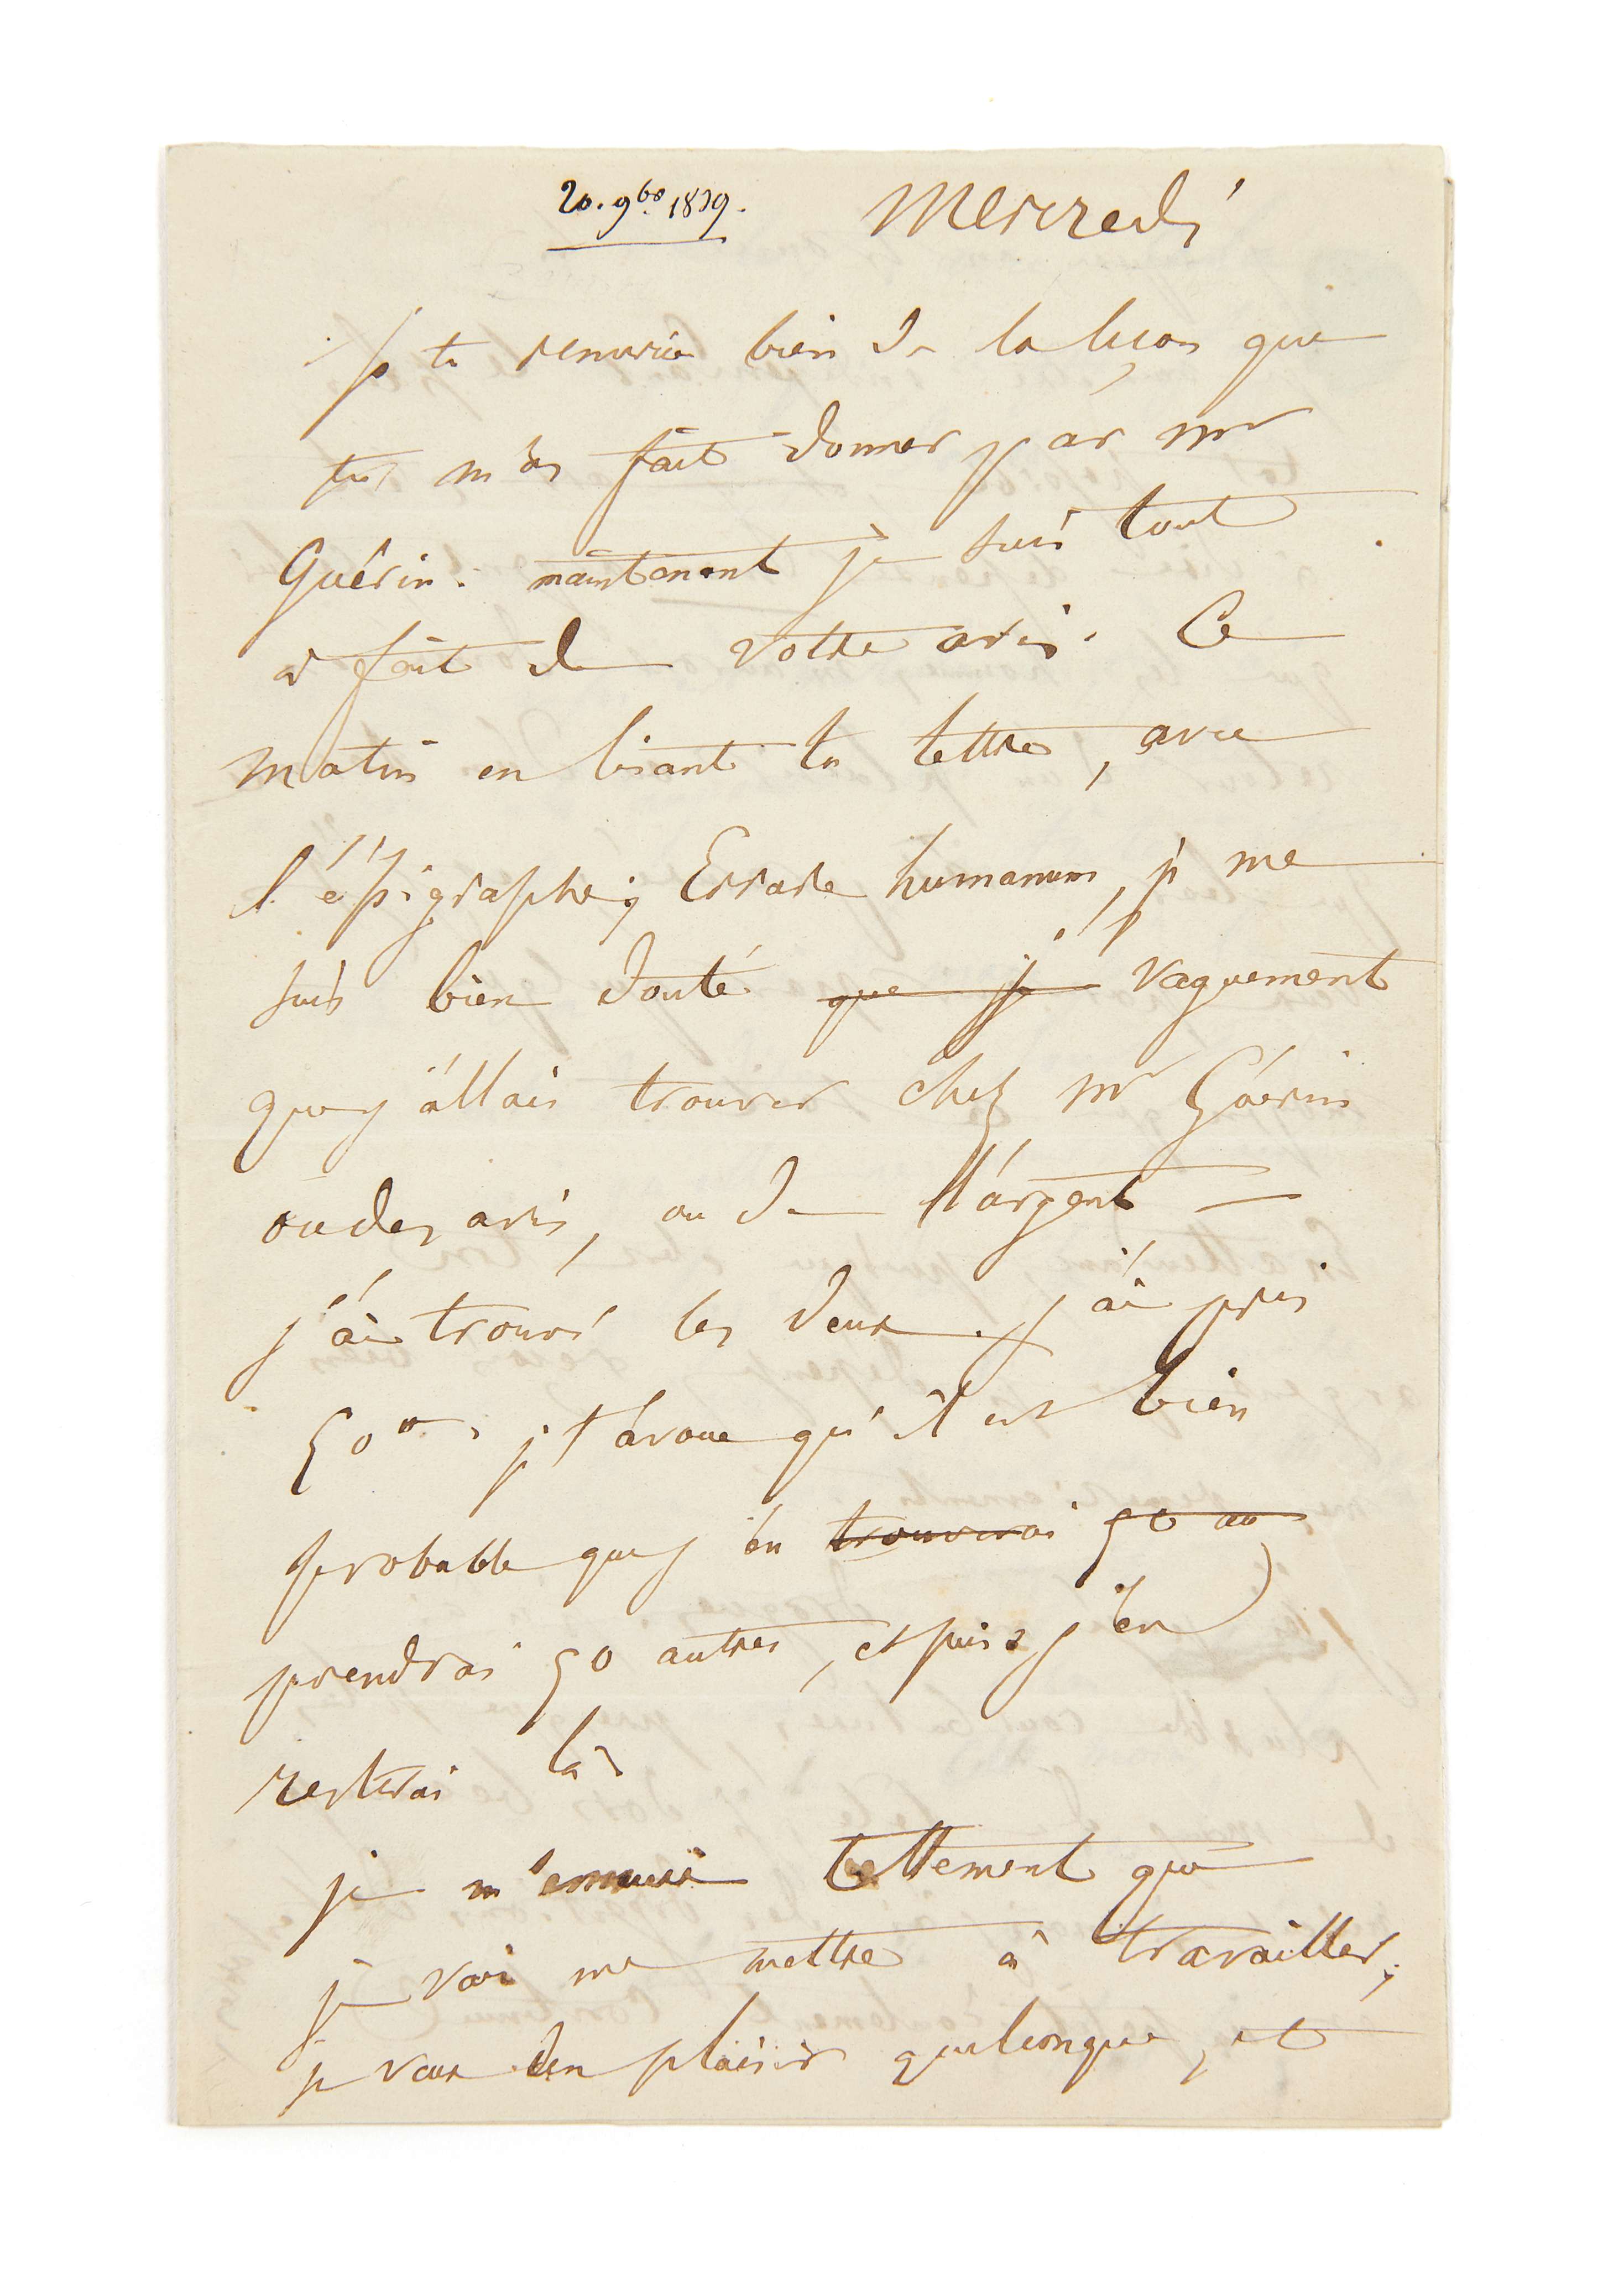 20. 9bre 1839. Mercredi
je te remercie bien de la leçon que
tu m'as fait donner par Mr
Guérin. maintenant je suis tout
à fait de votre avis. Ce
matin en lisant ta lettre, avec
l'épigraphe; Errare humanum, je me
suis bien douté que je vaguement
que j'allais trouver chez Mr Guérin
ou des avis, ou de l'argent —
j'ai trouvé les deux. j'ai pris
50 je t'avoue qu'il est bien
probable que j'en trouverai 50 au
prendrai 50 autres, et puis j'en
resterai là
je m'ennuie tellement que
je vais me mettre à travailler;
je veux un plaisir quelconque, et